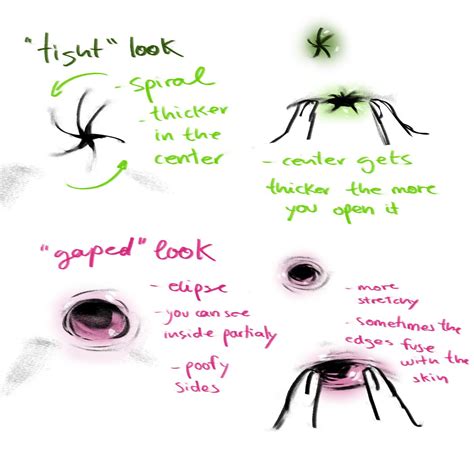 "tight" look
- spiral
- thicker
in the
center
- center gets
thicker the more
you open it
"gaped" look
- elipse
- you can see
inside partialy
- poofy
sides
- more
stretchy
- sometimes the
edges fuse
with the
skin